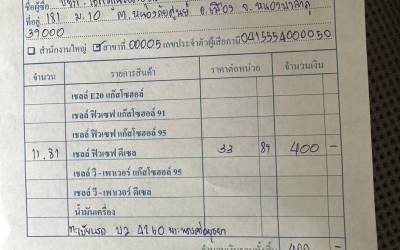 ชื่อผู้ซื้อ
ที่อยู่ 181 ม.10 ต.
39000
สำนักงานใหญ่ ☑ สาขาที่ 00005 เลขประจำตัวผู้เสียภาษี 0415554000050
จำนวน รายการสินค้า ราคาต่อหน่วย จำนวนเงิน
เชลล์ E20 แก๊สโซฮอล์
เชลล์ ฟิวเซฟ แก๊สโซฮอล์ 91
เชลล์ ฟิวเซฟ แก๊สโซฮอล์ 95
11.81 เชลล์ ฟิวเซฟ ดีเซล 33 87 400 -
เชลล์ วี - เพาเวอร์ แก๊สโซฮอล์ 95
เชลล์ วี - เพาเวอร์ ดีเซล
น้ำมันเครื่อง
ทะเบียนรถ 4260
400 -